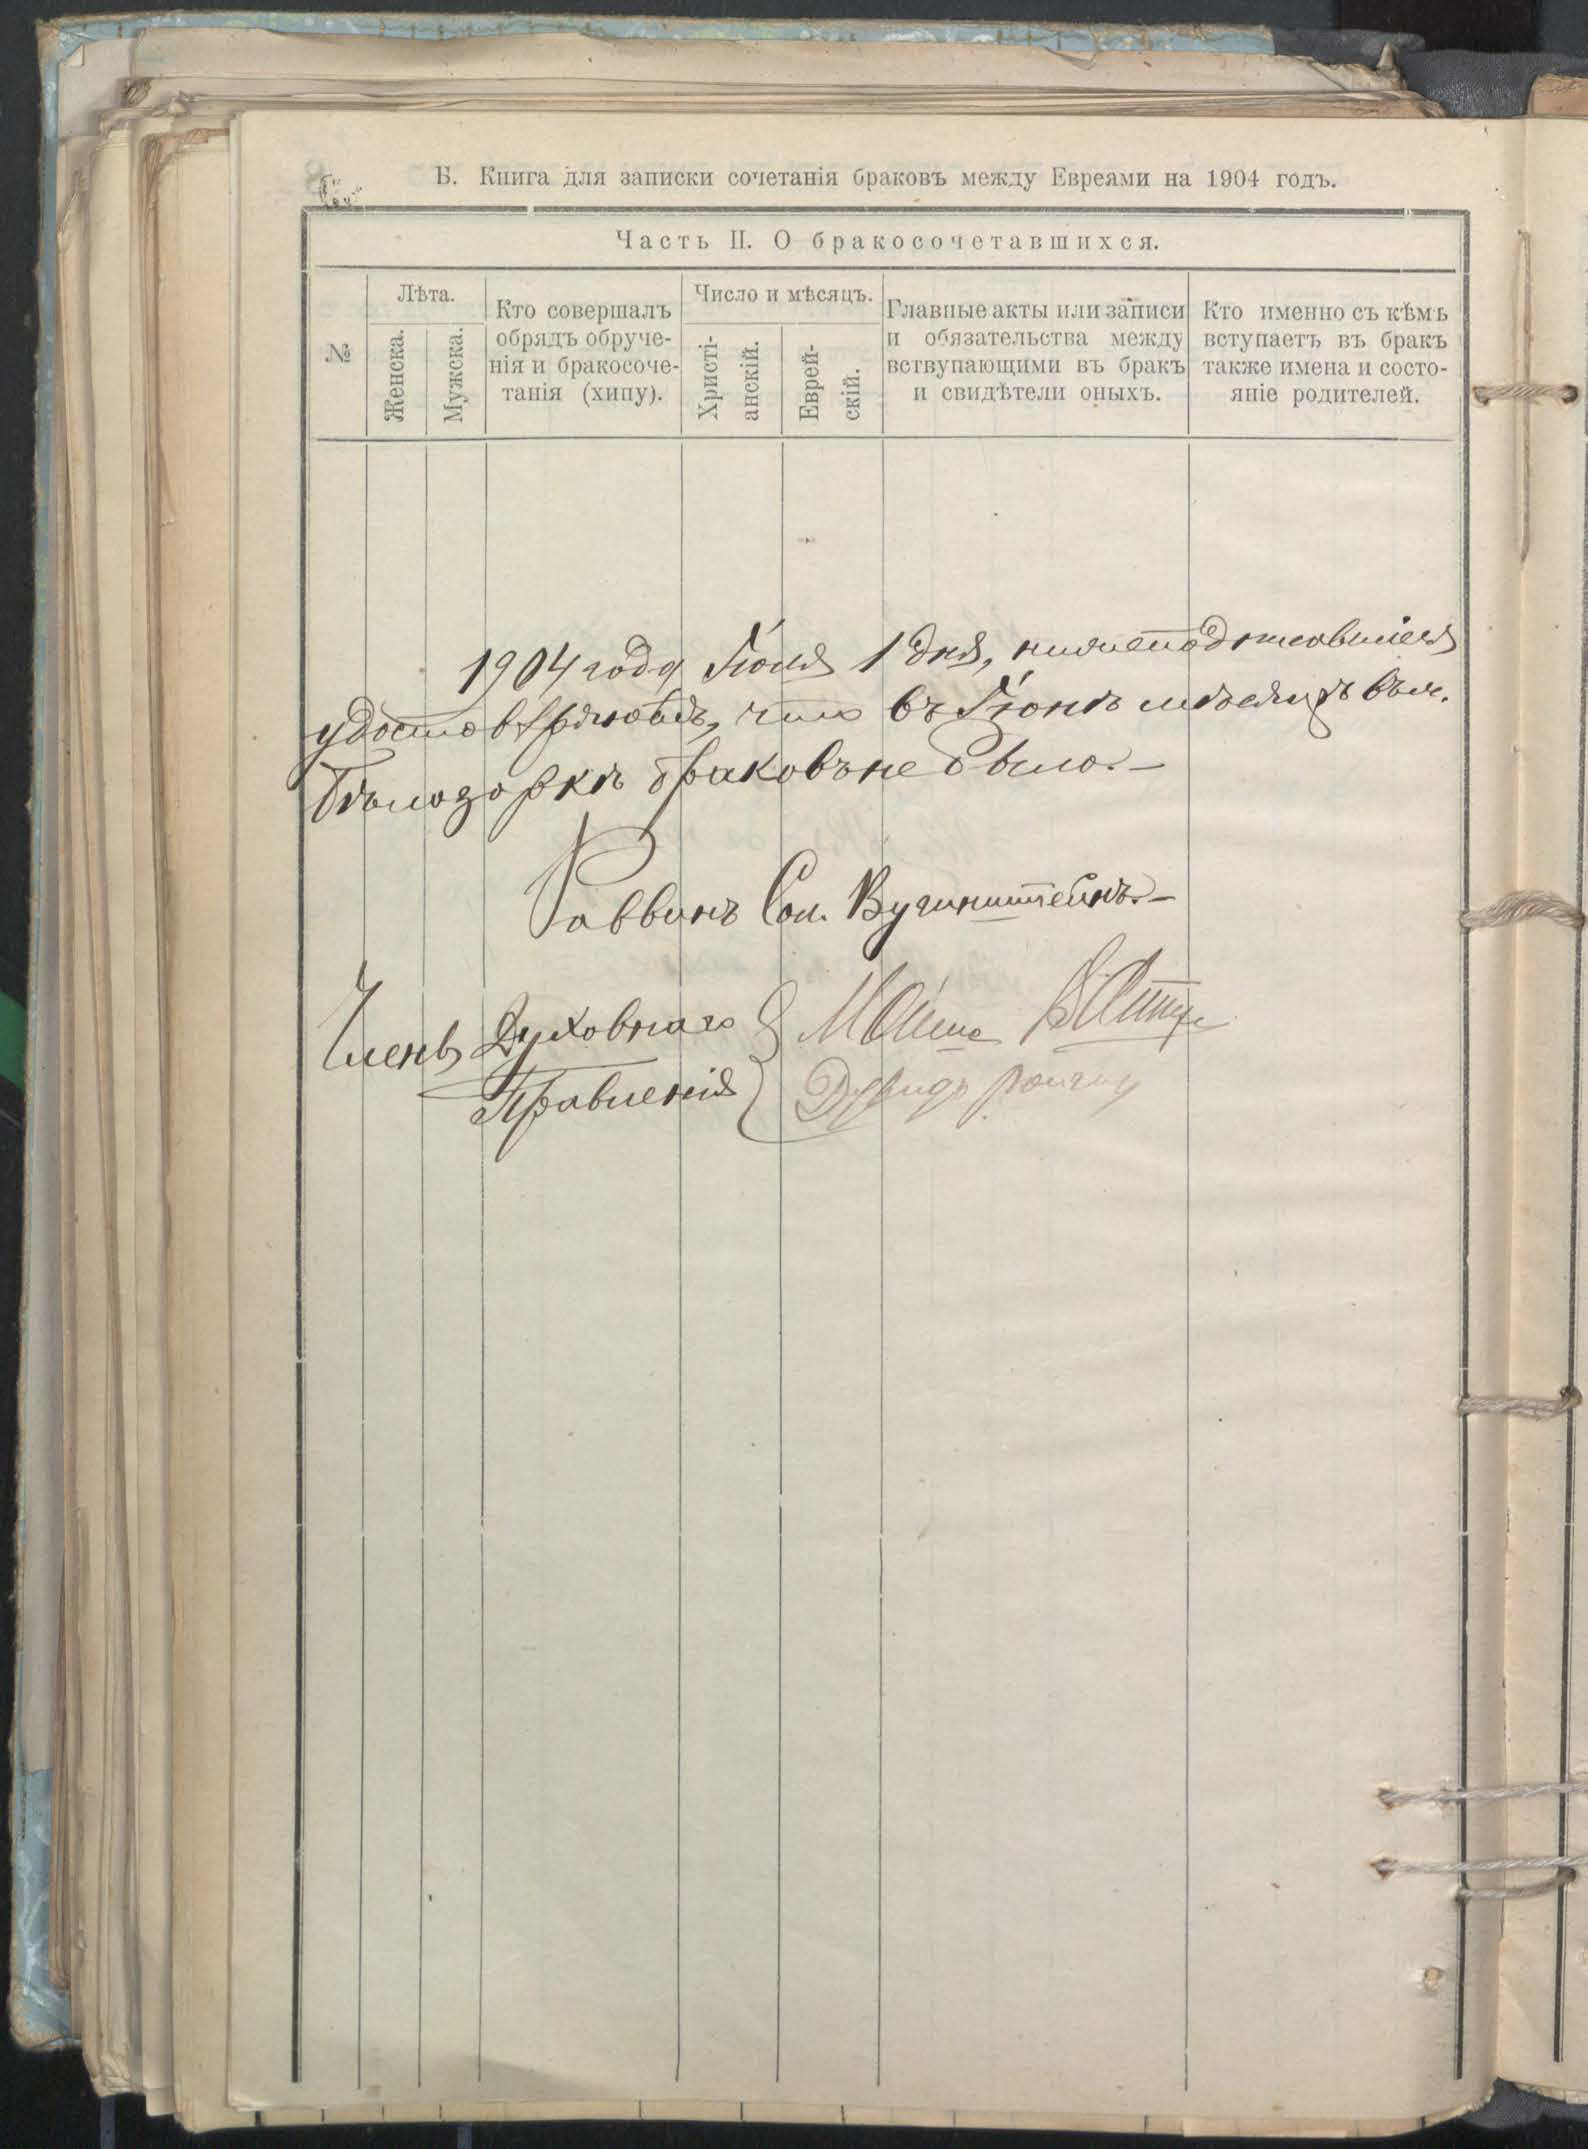 Б. Книга для записки сочетанія браковъ между Евреями на 1904 годъ.
Часть II. О бракосочетавшихся.
№
Лѣта.
Женска.
Мужска.
Кто совершалъ
обрядъ обруче-
нія и бракосоче-
танія (хипу).
Число и мѣсяцъ.
Христі-
анскій.
Еврей-
скій.
Главные акты или записи
и обязательства между
вствупающими въ бракъ
и свидѣтели оныхъ.
Кто именно съ кѣмъ
вступаетъ въ бракъ
также имена и состо-
яніе родителей.
1904 года Іюля 1 дня, нижеподписавшіеся
удостовѣряютъ, что въ Іюнѣ мѣсяцѣ въ м.
Бѣлозоркѣ браковъ не было.—
Раввинъ Сол. Вугинштейнъ.—
Члены Духовнаго
Правленія
Давидъ